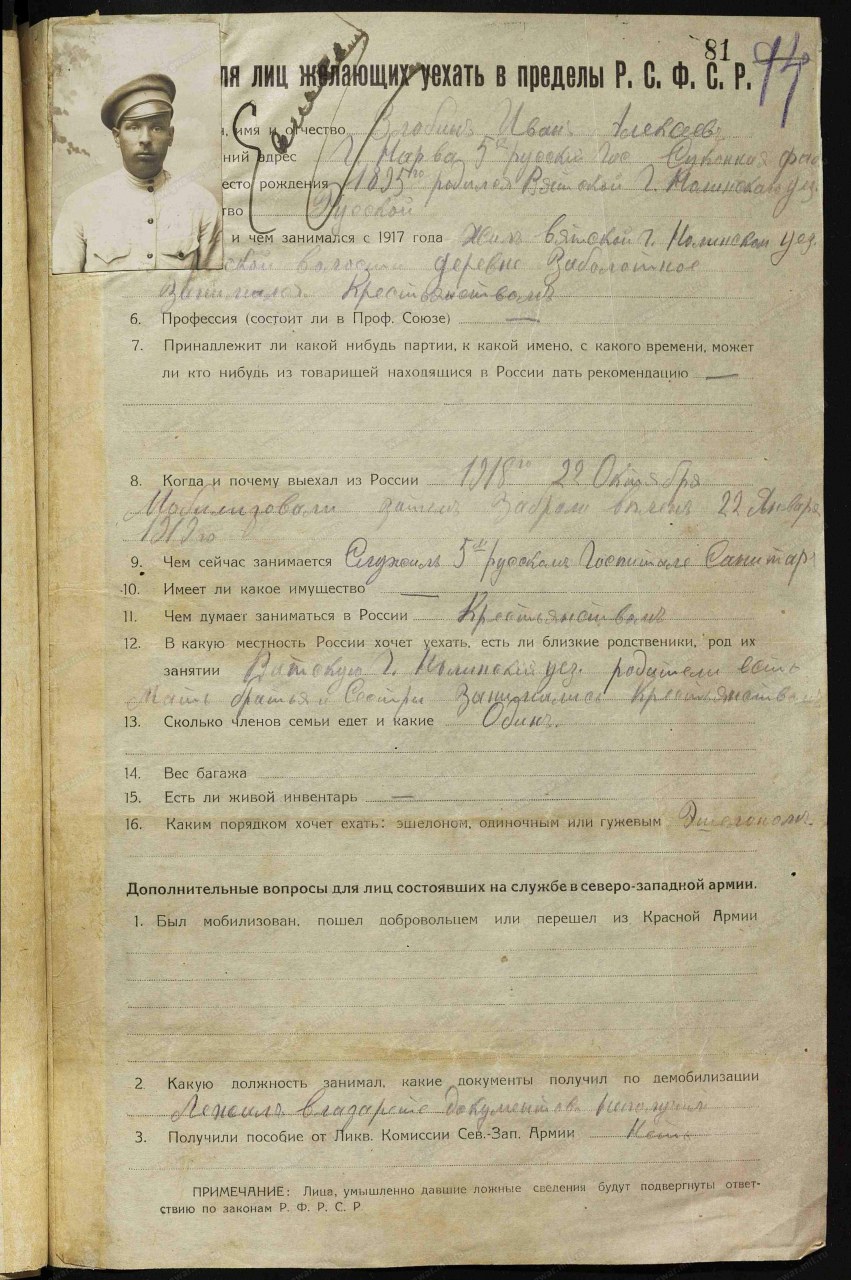 81
94
ля лиц желающих уехать в пределы Р. С. Ф. С. Р.
, имя и отчество Злобинъ Иванъ Алексеев
ний адрес Г. Нарва 5й русский Гос Суконная фаб
есто рождения 1895го родился Вятской Г. Нолинскаго уез.
тво Русской
и чем занимался с 1917 года Жилъ Вятской Г. Нолинском уез.
ской волости деревне Заболотное
Занимался Крестьянствомъ
6. Профессия (состоит ли в Проф. Союзе) —
7. Принадлежит ли какой нибудь партии, к какой имено, с какого времени, может
ли кто нибудь из товарищей находящися в России дать рекомендацию —
8. Когда и почему выехал из России 1918го 22 Октября
Мобилизовали затем забрали в плен 22 Января
1919го
9. Чем сейчас занимается Служилъ 5й русскомъ Госпитале Санитар
10. Имеет ли какое имущество —
11. Чем думает заниматься в России Крестьянствомъ
12. В какую местность России хочет уехать, есть ли близкие родственики, род их
занятии Вятскую Г. Нолинский уез. родители есть
Мать братья и Сестры Занимались Крестьянством
13. Сколько членов семьи едет и какие Одинъ.
14. Вес багажа
15. Есть ли живой инвентарь —
16. Каким порядком хочет ехать: эшелоном, одиночным или гужевым Эшелономъ.
Дополнительные вопросы для лиц состоявших на службе в северо-западной армии.
1. Был мобилизован, пошел добровольцем или перешел из Красной Армии
2. Какую должность занимал, какие документы получил по демобилизации
Лежалъ в лазарете документов неполучил
3. Получили пособие от Ликв. Комиссии Сев.-Зап. Армии Нетъ
ПРИМЕЧАНИЕ: Лица, умышленно давшие ложные сведения будут подвергнуты ответ-
ствию по законам Р. Ф. Р. С. Р